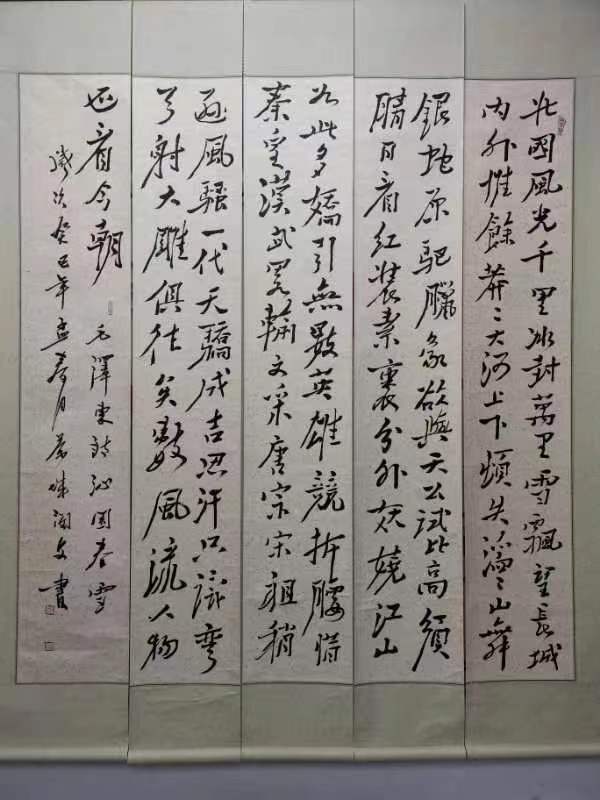 北國風光千里冰封萬里雪飄望長城
内外惟餘莽〻大河上下頓失滔〻山舞
銀蛇原馳臘象欲與天公試比高須
晴日看紅裝素裹分外妖嬈江山
如此多嬌引無數英雄競折腰惜
秦皇漢武略輸文采唐宗宋祖稍
遜風騷一代天驕成吉思汗只識彎
弓射大雕俱往矣數風流人物
还看今朝 毛澤東詩沁園春雪
歲次癸巳年孟春月 書